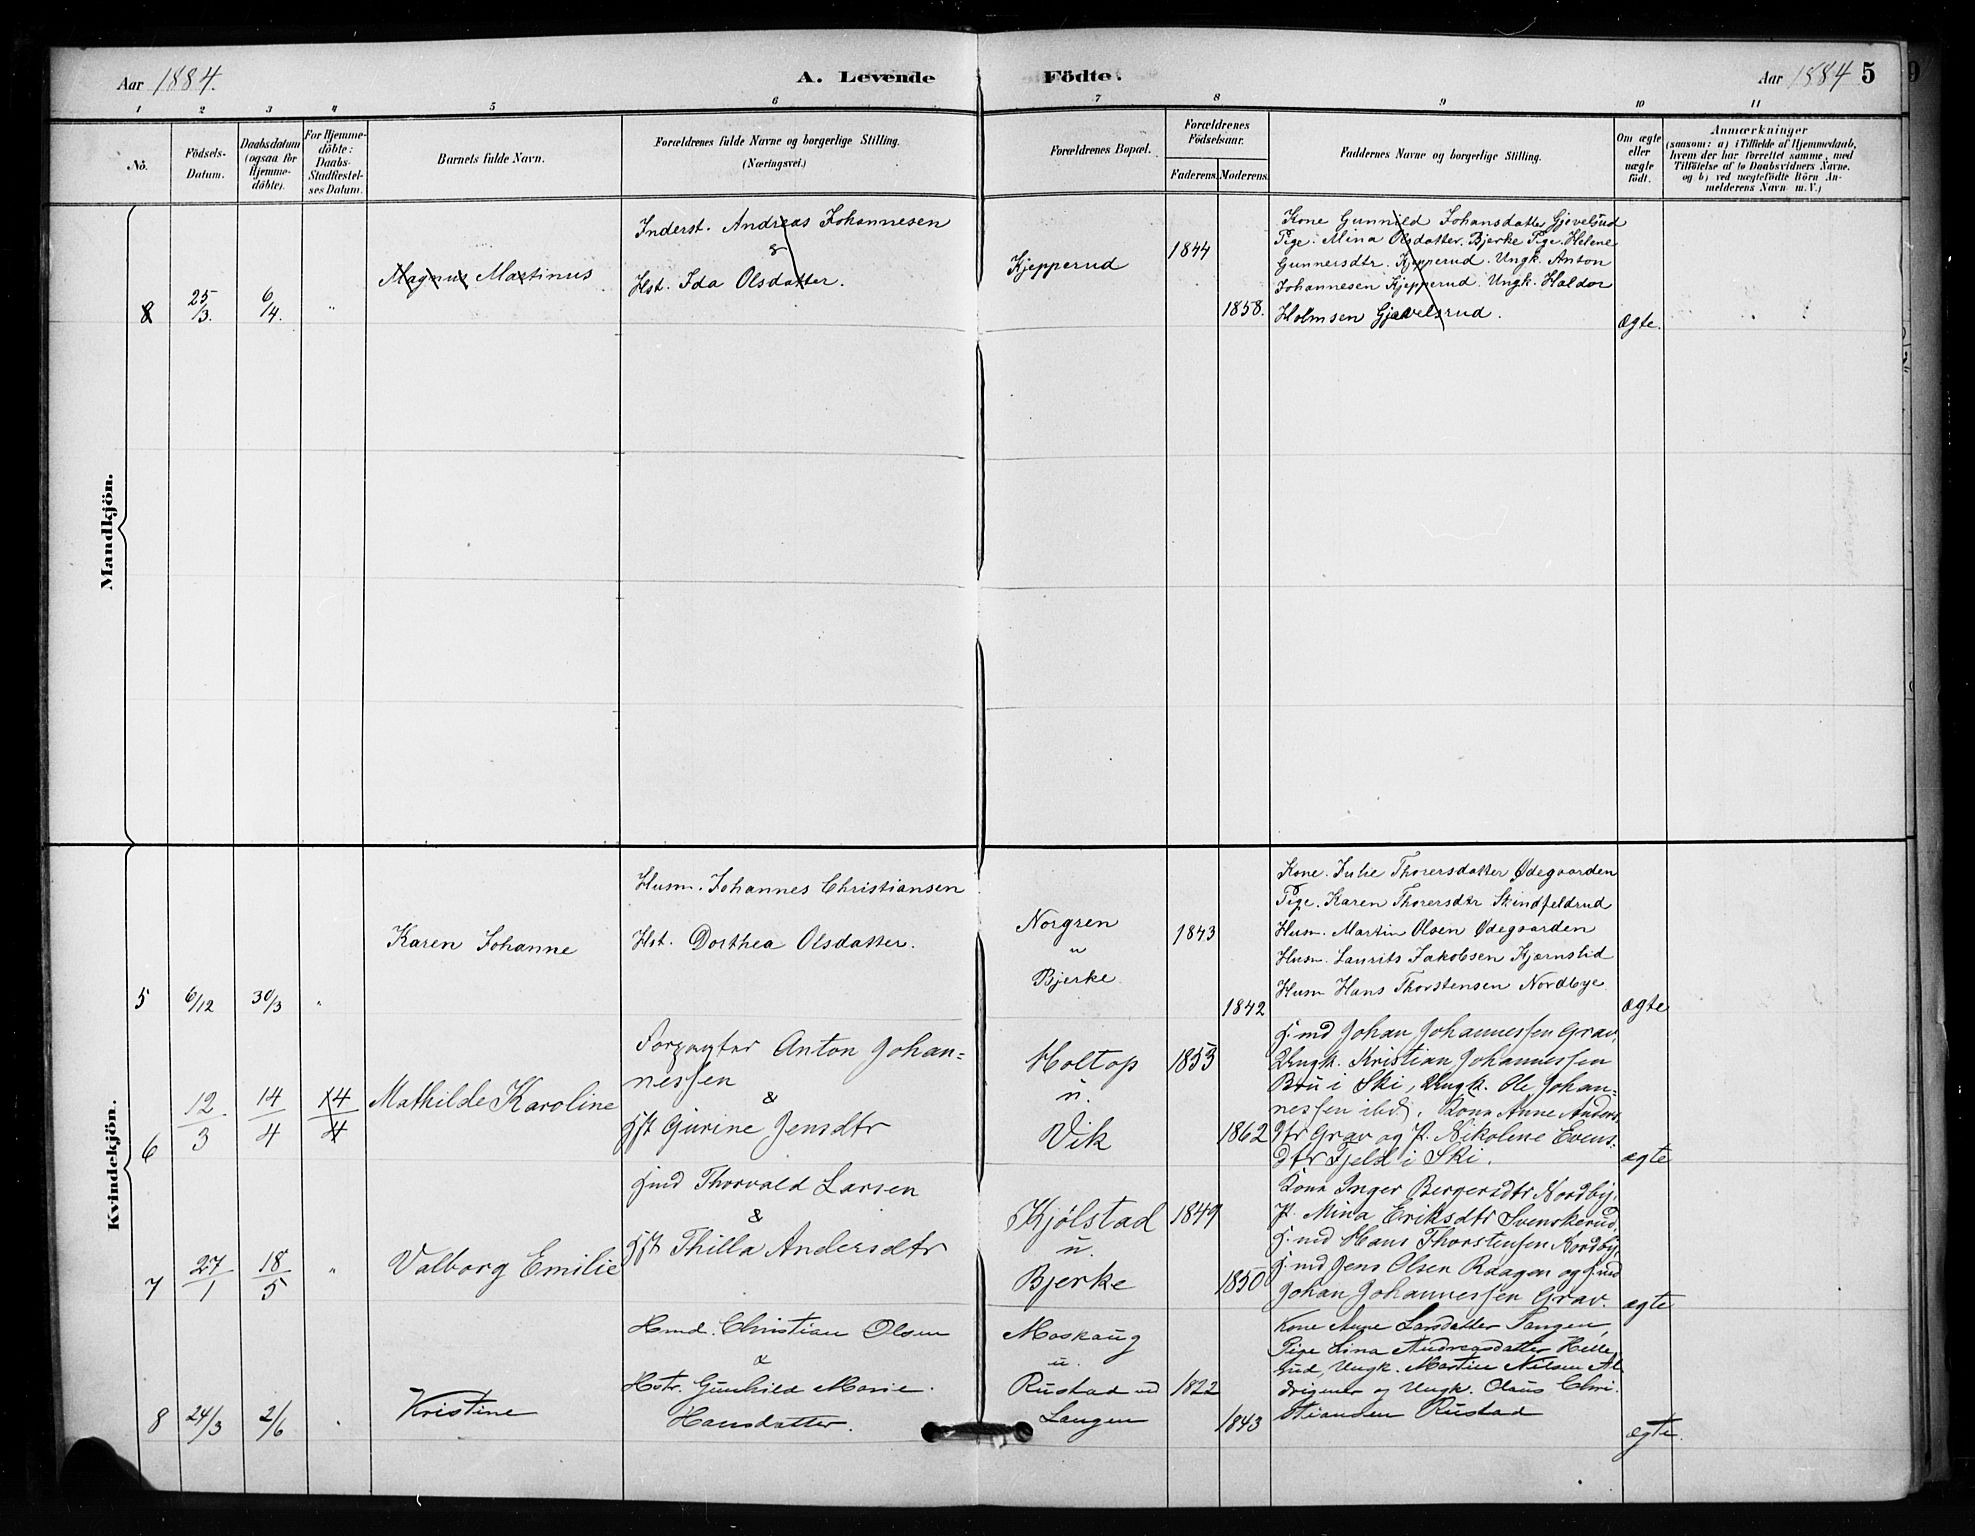 Aar 1884.
A. Levende Födte.
Aar 1884 5
9
1 2 3 4 5 6 7 8 9 10 11
No.
Födsels-Datum.
Daabsdatum (ogsaa for Hjemme-döbte).
For Hjemme-döbte: Daabs-Stadfæstel-ses Datum.
Barnets fulde Navn.
Forældrenes fulde Navne og borgerlige Stilling. (Næringsvei.)
Forældrenes Bopæl.
Forældrenes Födselsaar.
Faderens. Moderens.
Faddernes Navne og borgerlige Stilling.
Om ægte eller uægte födt.
Anmærkninger
(saasom: a) i Tilfælde af Hjemmedaab, hvem der har forrettet samme, med Tilföielse af to Daabsvidners Navne. og b) ved uægtefödte Börn An-melderens Navn m. V.)
Mandkjön.
8
25/3.
6/4.
"
Magnus Martinus
Inderst. Andreas Johannesen
&
Hst. Ida Olsdatter.
Kjepperud
1844
1858.
Kone Gunnild Johansdatter Gjevelsrud
Pige. Mina Olsdatter. Bjerke Pige. Helene
Gunnersdtr. Kjepperud. Ungk. Anton
Johannesen Kjepperud. Ungk. Haldor
Holmsen Gjævelsrud.
Ægte.
Kvindekjön.
5
6/12
30/3
"
Karen Johanne
Husm. Johannes Christiansen
Hst. Dorthea Olsdatter.
Norgren
u
Bjerke
1843
1842
Kone. Julie Thorersdatter Ødegaarden
Pige. Karen Thorersdtr Skindfeldrud
Husm. Martin Olsen Ødegaarden
Husm. Laurits Jakobsen Kjærnslid
Husm Hans Thorstensen Nordbye
Ægte
6
12/3
14/4
14/4
Mathilde Karoline
Forpagter Anton Johan=
nessen
&
Hst Gurine Jensdtr
Holtop
u.
Vik
1853
1862
Johan Johannessen Grav,
Ungk. Kristian Johannessen
Bru i Ski, Ungk. Ole Johan-
nessen ibd, Kona Anne Anders
dtr Grav og P. Nikolene Evens.
dtr Fjeld i Ski.
ægte
7
27/1
18/5
"
Valborg Emilie
Thorvald Larsen
&
Hst Thilla Andersdtr
Kjølstad
u.
Bjerke
1849
1850
Kona Inger Bergersdtr Nordby,
P. Mina Eriksdtr Svenskerud,
Hans Thorstensen Nordby,
Jens Olsen Raagen og
Johan Johannessen Grav.
ægte
8
24/3
2/6
"
Kristine
Hmd. Christian Olsen
&
Hstr. Gunhild Marie
Hansdatter.
Moskaug
u.
Rustad ved
Langen
1822
1843
Kone Anne Larsdatter Tangen,
Pige Lina Andreasdatter Helle-
rud, Ungk. Martin Nilsen Al
driguer og Ungk. Olaus Chri-
stiansen Rustad
ægte.